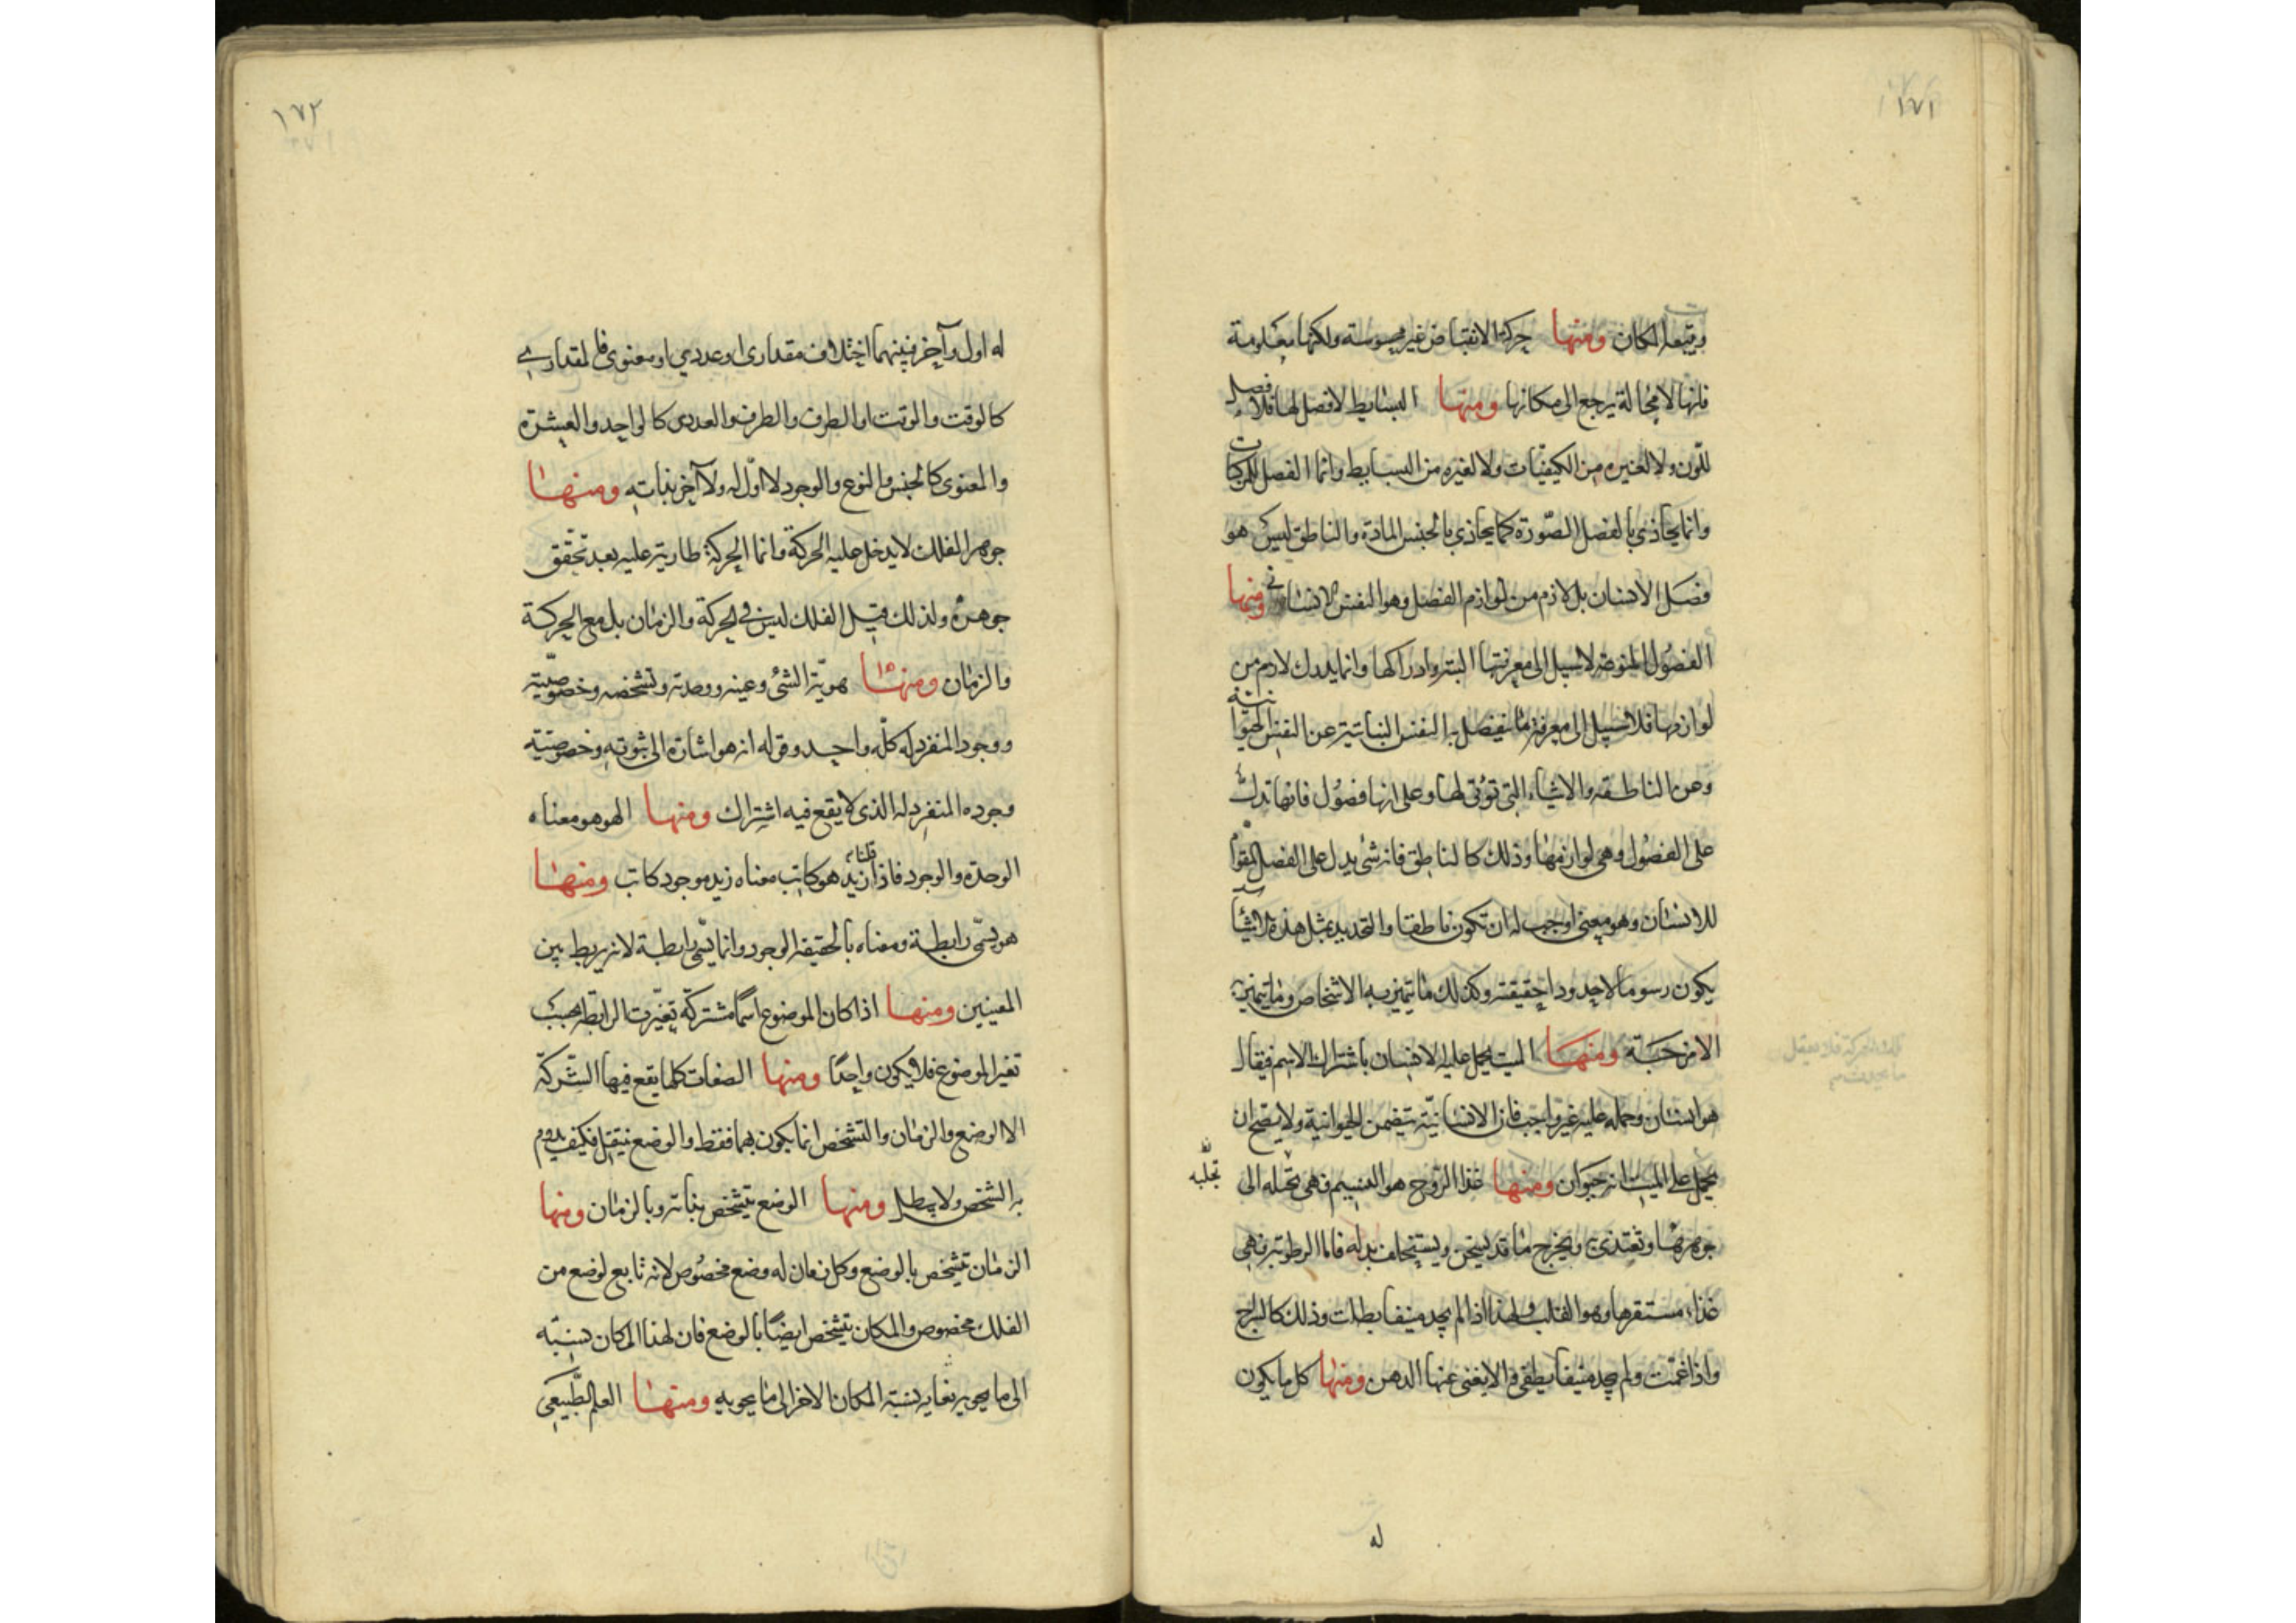 ١٧١
ويتبعه المكان ومنها حركة الانقباض غير محسوسة ولكنها معلومة
فانها لامحالة يرجع الى مكانها ومنها البسايط لا فصل لها فلا فصل
للون ولا لغيره من الكيفيات ولا لغيره من البسايط وانما الفصل للمركبات
وانما يحاذي بالفصل الصورة كما يحاذي بالجنس المادة والناطق ليس هو
فصل الانسان بل لازم من لوازم الفصل وهو النفس الانسانى ومنها
الفصول المنوعه لا سبيل الى معرفتها البته وادراكها وانما يدرك لازم من
لوازمها فلا سبيل الى معرفة ما ينفصل به النفس النباتية عن النفس الحيوانية
وعن الناطقه والاشياء التى تؤتى لها وعلى انها فصول فانها تدل
على الفصول وهى لوازمها وذلك كالناطق فانه شئ يدل على الفصل المقوم
للانسان وهو معنى اوجب له ان تكون ناطقا والتحديد بمثل هذه الاشياء
يكون رسوما لا حدودا حقيقته وكذلك ما يتميز به الاشخاص وما يتميز به
الامزجة ومنها الميت يحمل عليه الانسان باشتراك الاسم فيقال
هو انسان وحمله عليه غير واجب فان الانسانية تتضمن الحيوانية ولا يصح ان
يحمل على الميت انه حيوان ومنها غذا الروح هو النسيم فهى تحيله الى
تجلبه
جوهرها وتغتذى به ويخرج ما قد يسخن ويستخلف بدله فاما الرطوبة فهى
غذاء مستقرها وهو القلب ولهذا اذا لم يجد متنفسا بطلت وذلك كالسراج
واذا غمت ولم يجد متنفسا يطفى ولا يغنى عنها الدهن ومنها كل ما يكون
له
١٧٢
له اول وآخر فبينهما اختلاف مقدارى او عددي او معنوى فالمقداري
كالوقت والوقت او الطرف والطرف والعددى كالواحد والعشرة
والمعنوى كالجنس والنوع والوجود لا اول له ولا آخر بذاته ومنها
جوهر الفلك لا يدخل عليه الحركة وانما الحركة طارية عليه بعد تحقق
جوهره ولذلك قيل الفلك ليس فى الحركة والزمان بل مع الحركة
والزمان ومنها هوية الشئ وعينه ووحدته وتشخصه وخصوصيته
ووجوده المنفرد له كله واحد وقوله انه هو اشارة الى ثبوته وخصوصيته
وجوده المنفرد له الذى لا يقع فيه اشتراك ومنها الهو هو معناه
الوحدة والوجود فاذا قلنا زيد هو كاتب معناه زيد موجود كاتب ومنها
هو يسمى رابطة ومعناه بالحقيقه الوجود وانما يسمى رابطة لانه يربط بين
المعنيين ومنها اذا كان الموضوع اسما مشتركة تغيرت الرابطة بحسب
تغير الموضوع فلا يكون واحدا ومنها الصفات كلها يقع فيها الشركة
الا الوضع والزمان والتشخص انما يكون بهما فقط والوضع ينتقل فكيف يدوم
به الشخص ولا يبطل ومنها الوضع يتشخص بذاته وبالزمان ومنها
الزمان يتشخص بالوضع وكل زمان له وضع مخصوص لانه تابع لوضع من
الفلك مخصوص والمكان يتشخص ايضا بالوضع فان لهذا المكان نسبة
الى ما يحويه تغاير نسبة المكان الاخر الى ما يحويه ومنها العلم الطبيعى